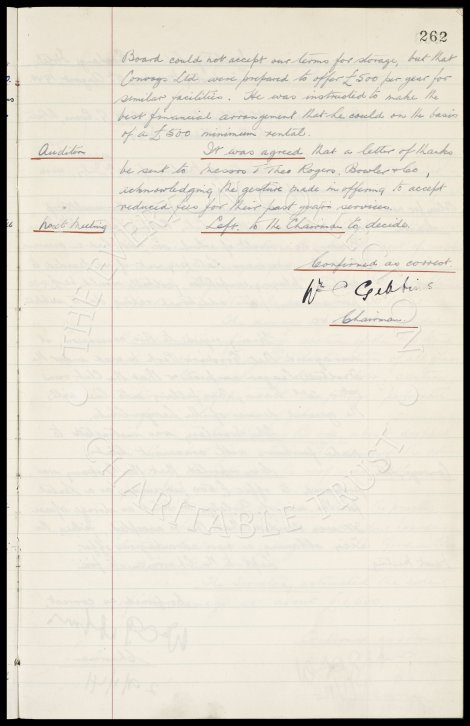 262
Board could not accept our terms for storage, but that
Conways Ltd were prepared to offer £500 per year for
similar facilities. He was instructed to make the
best financial arrangement that he could on the basis
of a £500 minimum rental.
Auditors It was agreed that a letter of thanks
be sent to Messrs Theo Rogers, Bowler & Co,
acknowledging the gesture made in offering to accept
reduced fees for their past years services.
Next Meeting Left to the Chairman to decide.
Confirmed as correct.
Wm C Gibbins
Chairman
CHARITABLE TRUST